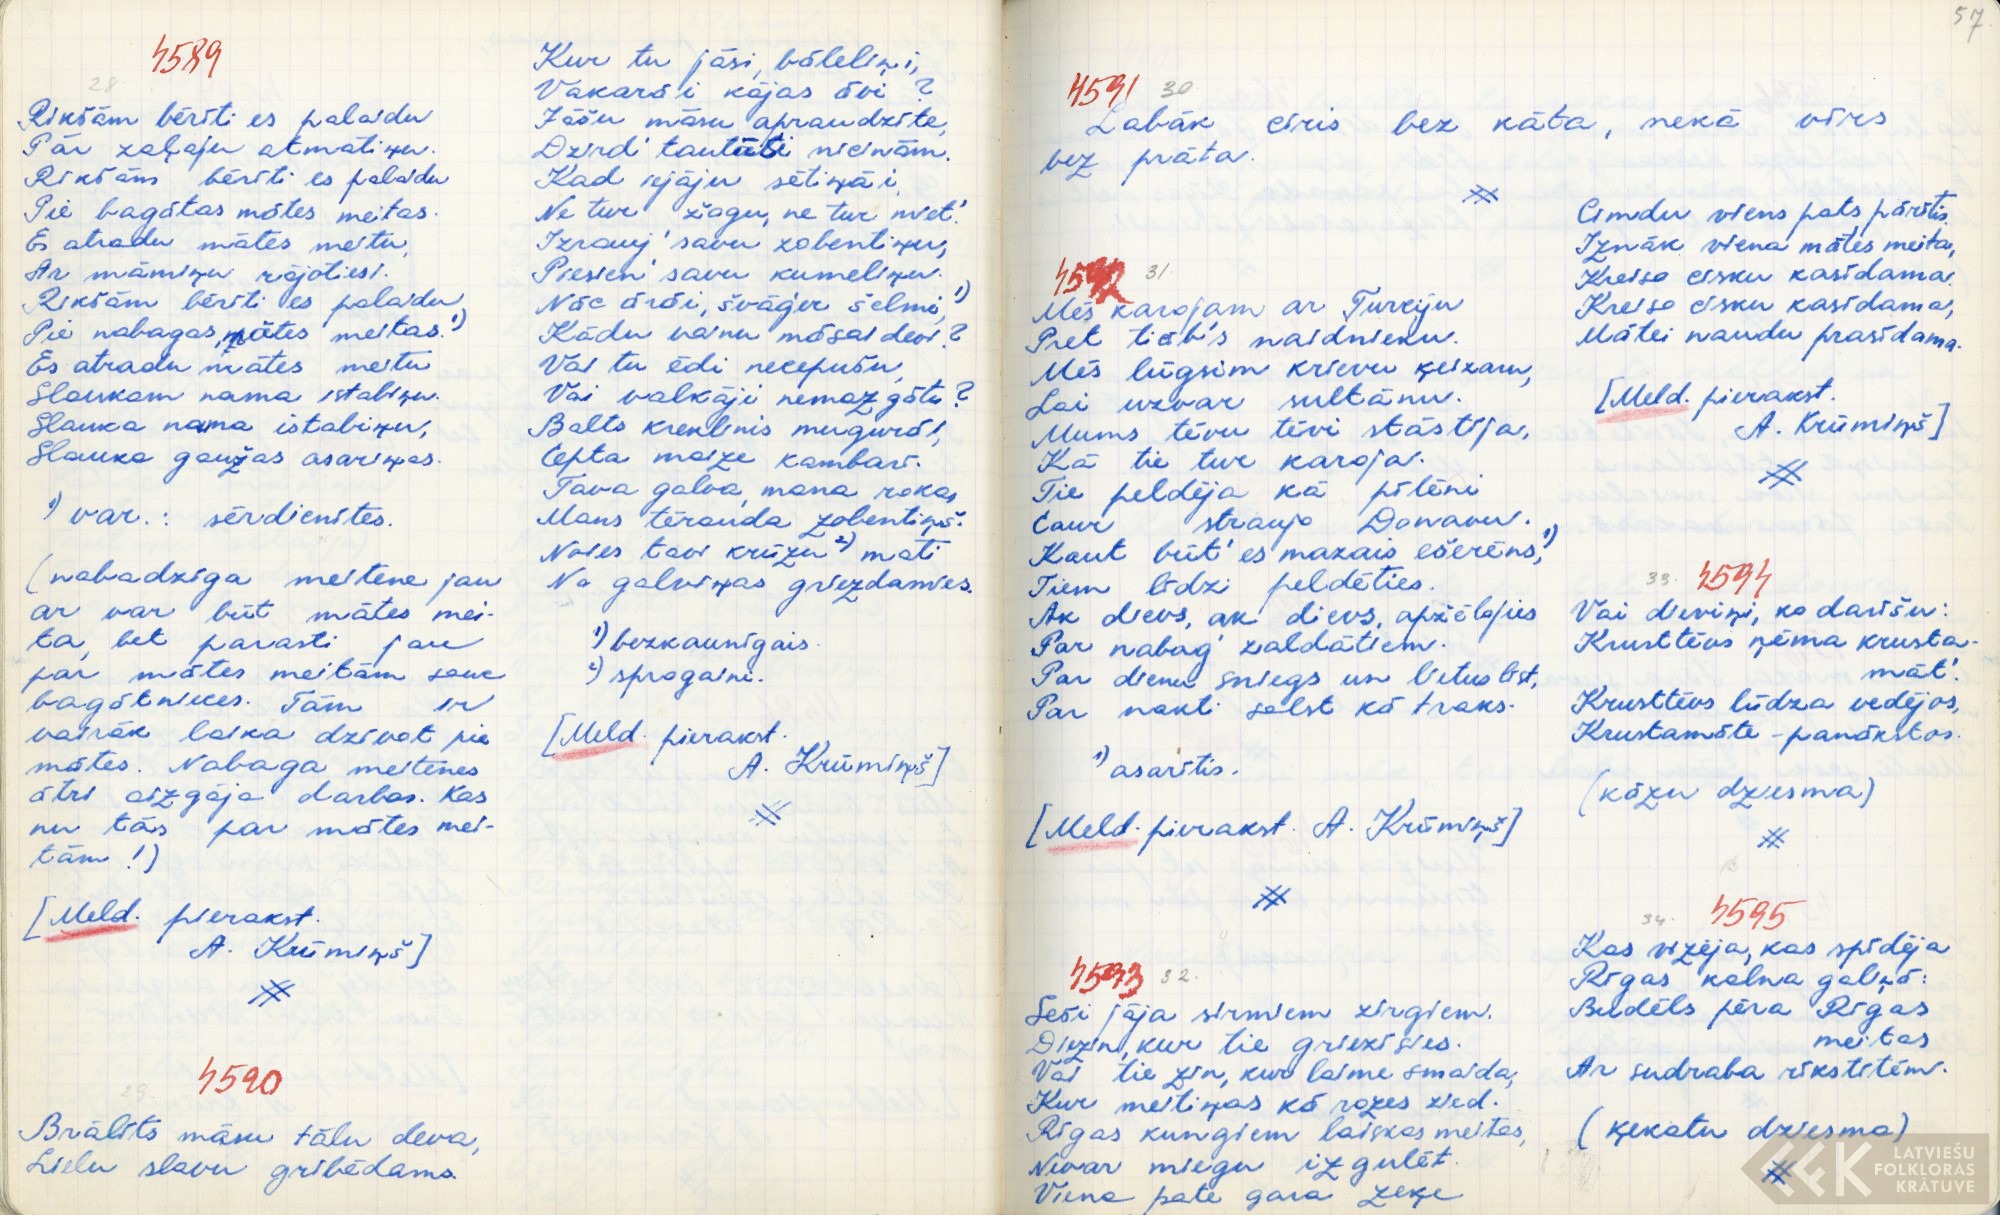 4589
28.
Rikšām bērīti es palaidu
Pār zaļaju atmatiņu.
Rikšām bērīti es palaidu
Pie bagātas mātes meitas.
Es atradu mātes meitu,
Ar māmiņu rājoties.
Rikšām bērīti es palaidu
Pie nabagas, mātes meitas.¹)
Es atradu mātes meitu
Slaukam nama istabiņu.
Slauka nama istabiņu,
Slauka gaužas asariņas.
¹) var.: sērdienītes.
(nabadzīga meitene jau
ar var būt mātes mei-
ta, bet parasti jau
par mātes meitām sauc
bagātnieces. Tām ir
vairāk laika dzīvot pie
mātes. Nabaga meitenes
ātri aizgāja darbos. Kas
nu tās par mātes mei-
tām!)
[Meld. pierakst.
A. Krūmiņš]
4590
29.
Brālīts māsu tālu deva,
Lielu slavu gribēdams.
Kur tu jāsi, bāleliņi,
Vakarā i kājas āvi?
Jāšu māsu apraudzīte,
Dzird' tautāsi nicinām.
Kad iejāju sētiņā i,
Ne tur žagu, ne tur miet'.
Izrauj' savu zobentiņu,
Piesien' savu kumeliņu.
Nāc ārāi, švāģer šelmi,¹)
Kādu vainu māsai devi?
Vai tu ēdi necepušu,
Vai valkāji nemazgātu?
Balts kreklinis mugurāi,
Cepta maize kambarī.
Tava galva, mana rokas,
Mans tērauda zobentiņš.
Noies tavi krūzu²) mati
No galviņas griezdamies.
¹) bezkaunīgais.
²) sprogaini.
[Meld. pierakst.
A. Krūmiņš]
57.
4591
30.
Labāk cirvis bez kāta, nekā vīrs
bez prāta.
4592
31.
Mēs karojam ar Turciju
Pret ticīb's naidnieku.
Mēs lūgsim krievu ķeizaru,
Lai uzvar sultānu.
Mums tēvu tēvi stāstīja,
Kā tie tur karoja.
Tie peldēja kā pīlēni
Caur straujo Donavu.
Kaut būt' es mazais ešerēns,¹)
Tiem līdzi peldēties.
Ak dievs, ak dievs, apžēlojies
Par nabag' zaldātiem.
Par dienu sniegs un lietus līst,
Par nakti salst kā traks.
¹) asarītis.
[Meld. pierakst. A. Krūmiņš]
4593
32.
Seši jāja sirmiem zirgiem.
Diezin, kur tie griezīsies.
Vai tie zin, kur laime smaida,
Kur meitiņas kā rozes zied.
Rīgas kungiem laiskas meitas,
Nevar miegu izgulēt.
Viena pate gara zeķe
Cimdu viens pats pārītis.
Iznāk viena mātes meita,
Kreiso cisku kasīdama.
Kreiso cisku kasīdama,
Mātei naudu prasīdama.
[Meld. pierakst.
A. Krūmiņš]
33. 4594
Vai dieviņi, ko darīšu:
Krusttēvs ņēma krusta-
māt'.
Krusttēvs lūdza vedējos,
Krustamāte - panākstos.
(kāzu dziesma)
34. 4595
Kas vizēja, kas spīdēja
Rīgas kalna galiņā:
Budēls pēra Rīgas
meitas
Ar sudraba rīkstītēm.
(ķekatu dziesma)
LATVIEŠU
FOLKLORAS
KRĀTUVE